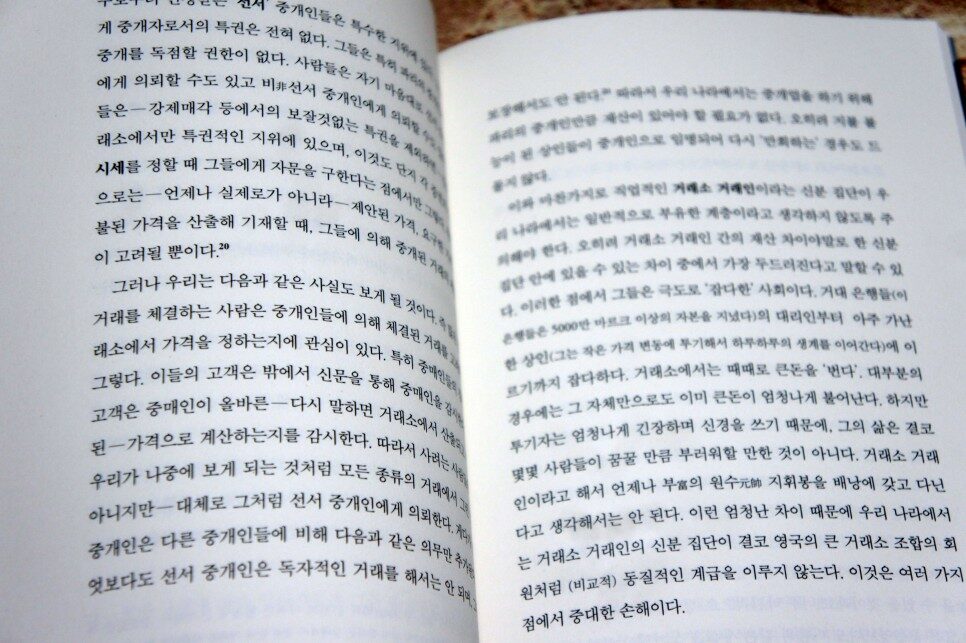 '선서' 중개인들은 특수한 지위에
게 중개자로서의 특권은 전혀 없다. 그들은 특히 파리의
중개를 독점할 권한이 없다. 사람들은 자기 마음대로
에게 의뢰할 수도 있고 비非선서 중개인에게 의뢰할 수도
들은—강제매각 등에서의 보잘것없는 특권을 제외하면
래소에서만 특권적인 지위에 있으며, 이것도 단지 각
시세를 정할 때 그들에게 자문을 구한다는 점에서만
으로는—언제나 실제로가 아니라—제안된 가격, 요구된
불된 가격을 산출해 기재할 때, 그들에 의해 중개된
이 고려될 뿐이다.20
그러나 우리는 다음과 같은 사실도 보게 될 것이다. 즉
거래를 체결하는 사람은 중개인들에 의해 체결된 거래를
래소에서 가격을 정하는지에 관심이 있다. 특히 중매인들의
그렇다. 이들의 고객은 밖에서 신문을 통해 중매인을
고객은 중매인이 올바른—다시 말하면 거래소에서
된—가격으로 계산하는지를 감시한다. 따라서 사려는
우리가 나중에 보게 되는 것처럼 모든 종류의 거래에서
아니지만—대체로 그처럼 선서 중개인에게 의뢰한다. 게다가
중개인은 다른 중개인들에 비해 다음과 같은 의무만
엇보다도 선서 중개인은 독자적인 거래를 해서는 안 되며,
보장해서도 안 된다. 따라서 우리 나라에서는 중개업을 하기 위해
파리의 중개인만큼 재산이 있어야 할 필요가 없다. 오히려 지불 불
능이 된 상인들이 중개인으로 임명되어 다시 '만회하는' 경우도 드
물지 않다.
이와 마찬가지로 직업적인 거래소 거래인이라는 신분 집단이 우
리 나라에서는 일반적으로 부유한 계층이라고 생각하지 않도록 주
의해야 한다. 오히려 거래소 거래인 간의 재산 차이야말로 한 신분
집단 안에 있을 수 있는 차이 중에서 가장 두드러진다고 말할 수 있
다. 이러한 점에서 그들은 극도로 '잡다한' 사회이다. 거대 은행들(이
은행들은 5000만 마르크 이상의 자본을 지녔다)의 대리인부터 아주 가난
한 상인(그는 작은 가격 변동에 투기해서 하루하루의 생계를 이어간다)에 이
르기까지 잡다하다. 거래소에서는 때때로 큰돈을 '번다'. 대부분의
경우에는 그 자체만으로도 이미 큰돈이 엄청나게 불어난다. 하지만
투기자는 엄청나게 긴장하며 신경을 쓰기 때문에, 그의 삶은 결코
몇몇 사람들이 꿈꿀 만큼 부러워할 만한 것이 아니다. 거래소 거래
인이라고 해서 언제나 부富의 원수元帥 지휘봉을 배낭에 갖고 다닌
다고 생각해서는 안 된다. 이런 엄청난 차이 때문에 우리 나라에서
는 거래소 거래인의 신분 집단이 결코 영국의 큰 거래소 조합의 회
원처럼 (비교적) 동질적인 계급을 이루지 않는다. 이것은 여러 가지
점에서 중대한 손해이다.